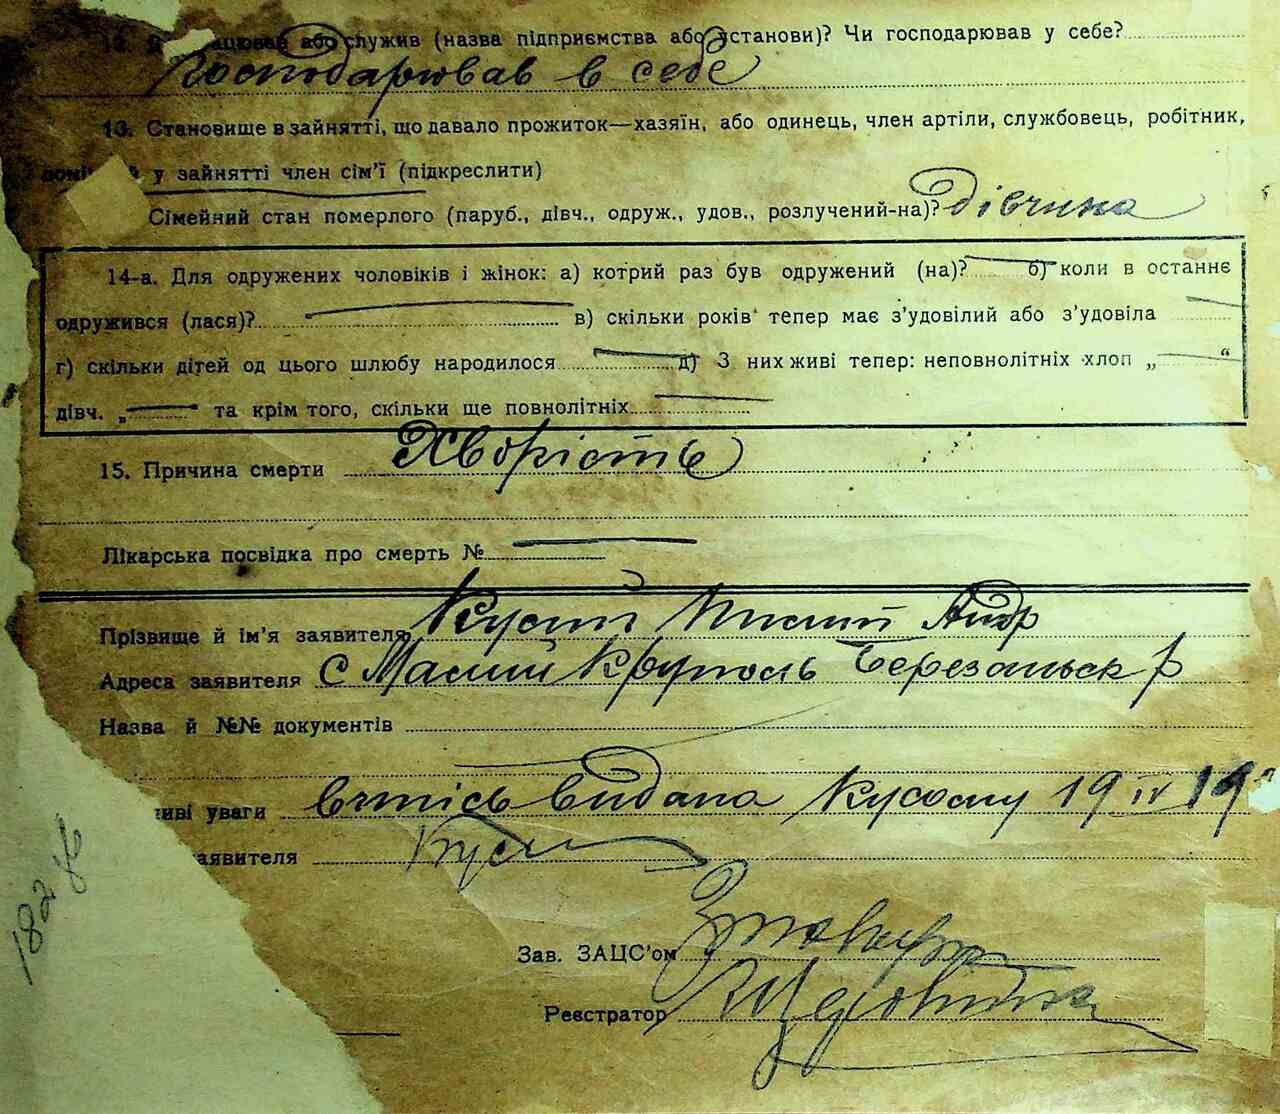 або служив (назва підприємства або установи)? Чи господарював у себе?
Господарював в себе
13. Становище в зайнятті, що давало прожиток—хазяїн, або одинець, член артіли, службовець, робітник,
у зайнятті член сім'ї (підкреслити)
Сімейний стан померлого (паруб., дівч., одруж., удов., розлучений-на)? дівчина
14-а. Для одружених чоловіків і жінок: а) котрий раз був одружений (на)? б) коли в останнє
одружився (лася)? в) скільки років тепер має з'удовілий або з'удовіла
г) скільки дітей од цього шлюбу народилося д) З них живі тепер: неповнолітніх хлоп „ “
дівч. „ та крім того, скільки ще повнолітніх
15. Причина смерти Хворість
Лікарська посвідка про смерть №
Прізвище й ім'я заявителя Кусий Андр
Адреса заявителя с Малий Круполь Березанськ р
Назва й №№ документів
уваги видана Кусому 19 IV 19
заявителя Кусий
Зав. ЗАЦС'ом
Реєстратор
182